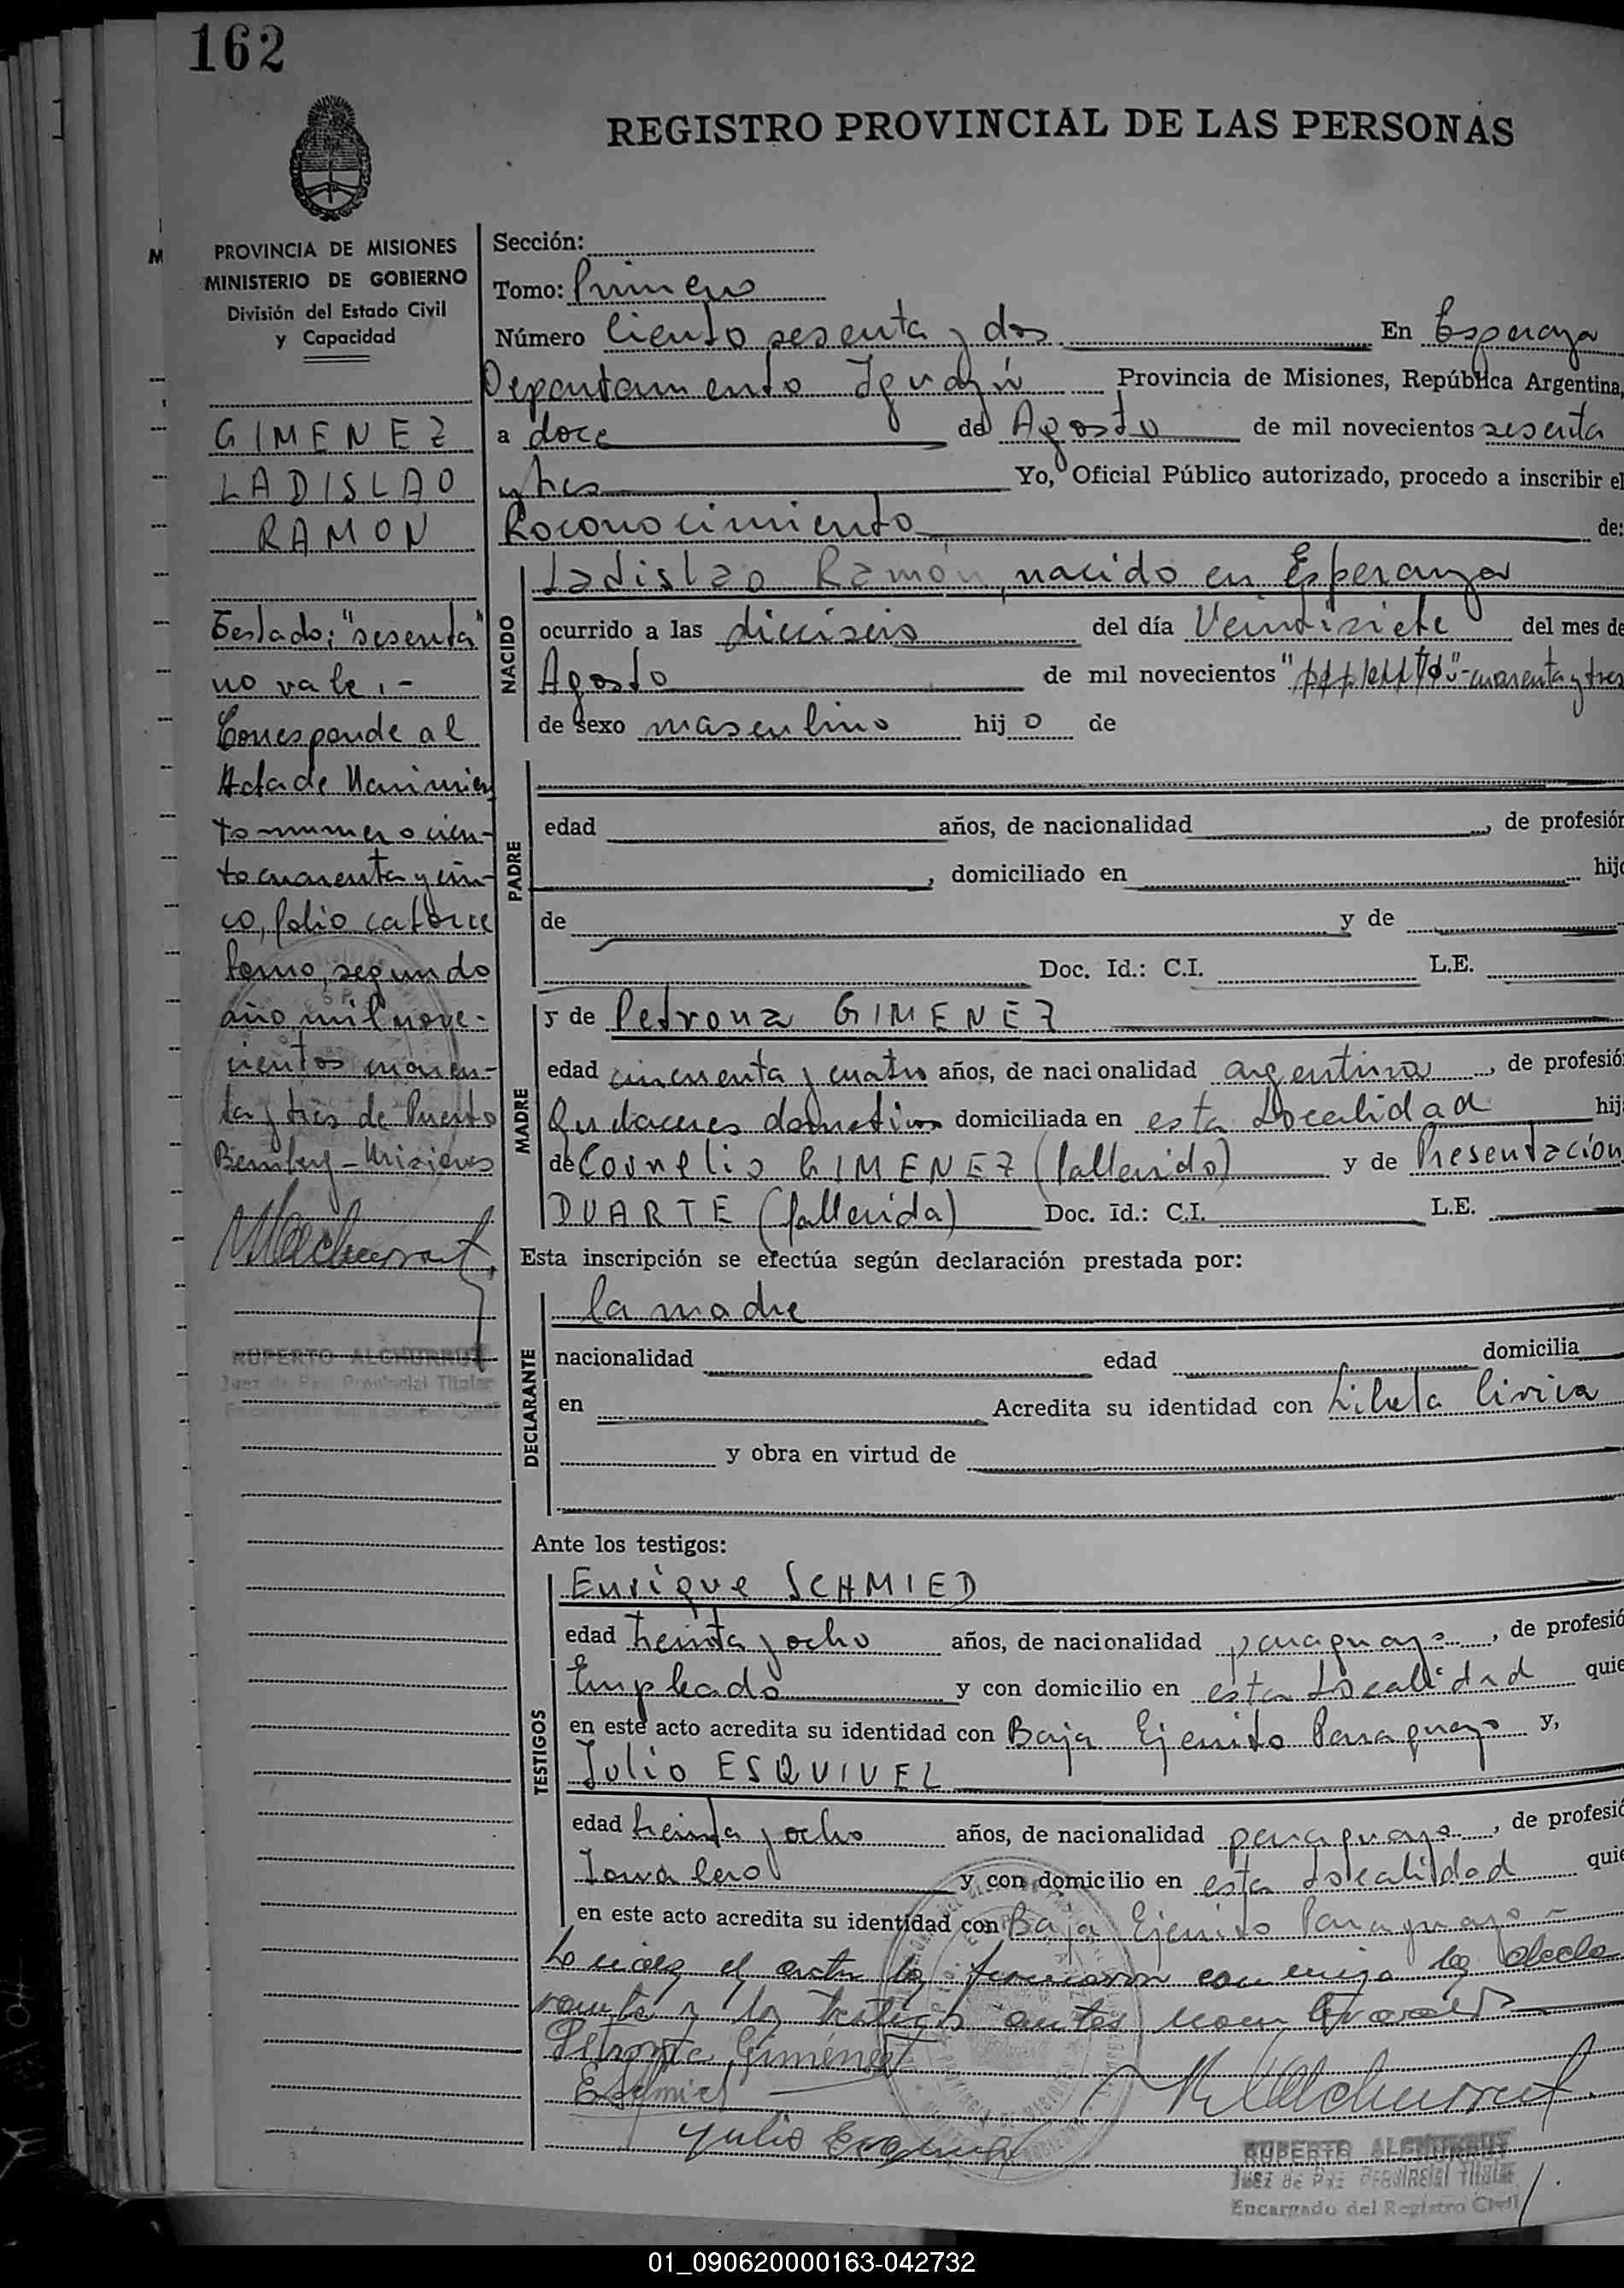 162
REGISTRO PROVINCIAL DE LAS PERSONAS
PROVINCIA DE MISIONES
MINISTERIO DE GOBIERNO
División del Estado Civil
y Capacidad
GIMENEZ
LADISLAO
RAMON
Testado: "sesenta"
no vale.-
Corresponde al
Acta de Nacimien
to numero cien-
to cuarenta y cin-
co, folio catorce
tomo, segundo
año mil nove-
cientos cuaren-
ta y tres de Puerto
Bemberg - Misiones
RUPERTO ALCHURRUT
Juez de Paz Provincial Titular
Sección:
Tomo: Primero
Número Ciento sesenta y dos En Esperanza
Departamento Iguazú Provincia de Misiones, República Argentina,
a doce de Agosto de mil novecientos sesenta
y tres Yo, Oficial Público autorizado, procedo a inscribir el
Reconocimiento de:
NACIDO
Ladislao Ramón, nacido en Esperanza
ocurrido a las dieciseis del día Veintisiete del mes de
Agosto de mil novecientos "sesenta"- cuarenta y tres
de sexo masculino hijo de
PADRE
edad años, de nacionalidad , de profesión
, domiciliado en hijo
de y de
Doc. Id.: C.I. L.E.
MADRE
y de Petrona GIMENEZ
edad cincuenta y cuatro años, de nacionalidad argentina, de profesió
Quehaceres domesticos domiciliada en esta Localidad hij
de Cornelio GIMENEZ (fallecido) y de Presentación
DUARTE (fallecida) Doc. Id.: C.I. L.E.
Esta inscripción se efectúa según declaración prestada por:
DECLARANTE
la madre
nacionalidad edad domicilia
en Acredita su identidad con Libreta Civica
y obra en virtud de
Ante los testigos:
TESTIGOS
Enrique SCHMIED
edad treinta y ocho años, de nacionalidad paraguayo, de profesió
Empleado y con domicilio en esta Localidad quie
en este acto acredita su identidad con Baja Ejercito Paraguayo y,
Julio ESQUIVEL
edad treinta y ocho años, de nacionalidad paraguayo, de profesió
Jornalero y con domicilio en esta Localidad quie
en este acto acredita su identidad con Baja Ejercito Paraguayo-
el acta la firmaron conmigo la decla
rante y los testigos antes nombrados
Petrona Gimenez
ESchmied
Julio Esquivel
RUPERTO ALCHURRUT
Juez de Paz Provincial Titular
Encargado del Registro Civil
01_090620000163-042732